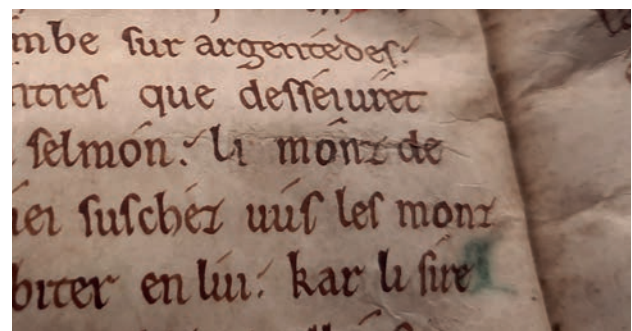 mbe sur argentedes:
ntres que desseiuret
selmon: li monz de
iei suschez uus les monz
biter en lui: kar li sire